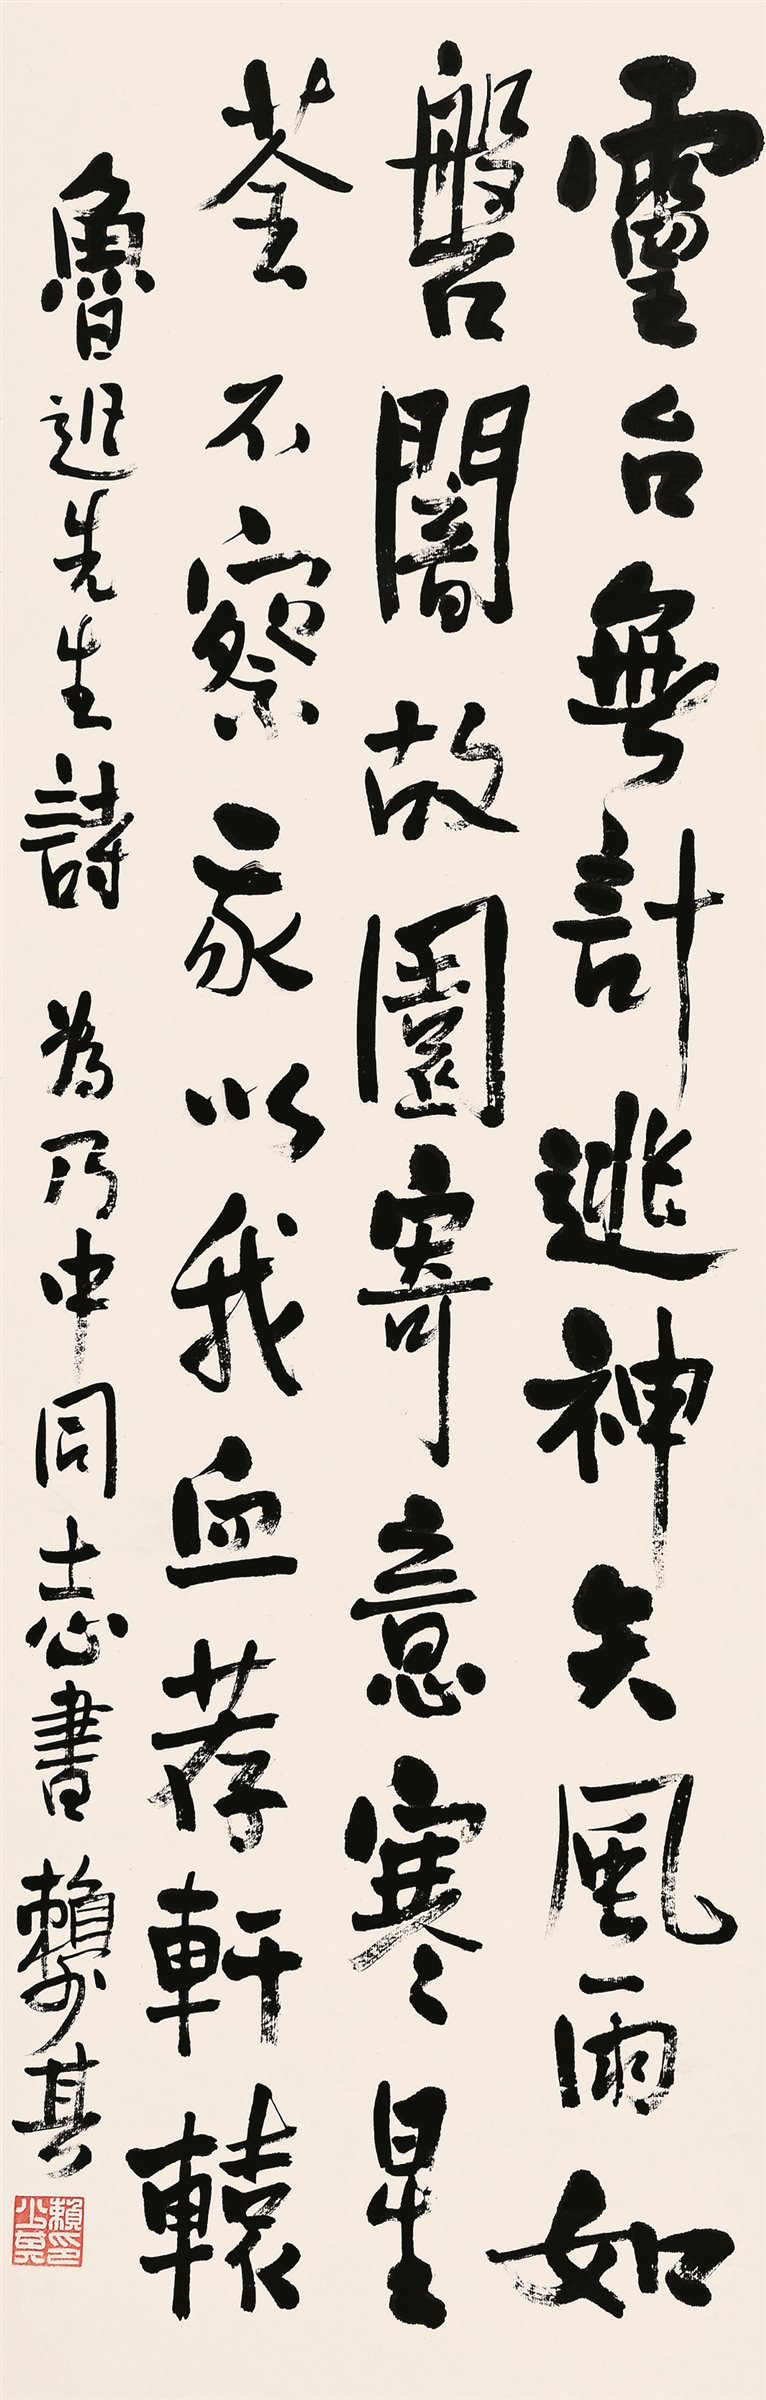 靈台無計逃神矢風雨如
磐闇故園寄意寒星
荃不察我以我血荐軒轅
魯迅先生詩 為乃中同志書 賴少其
賴印少其